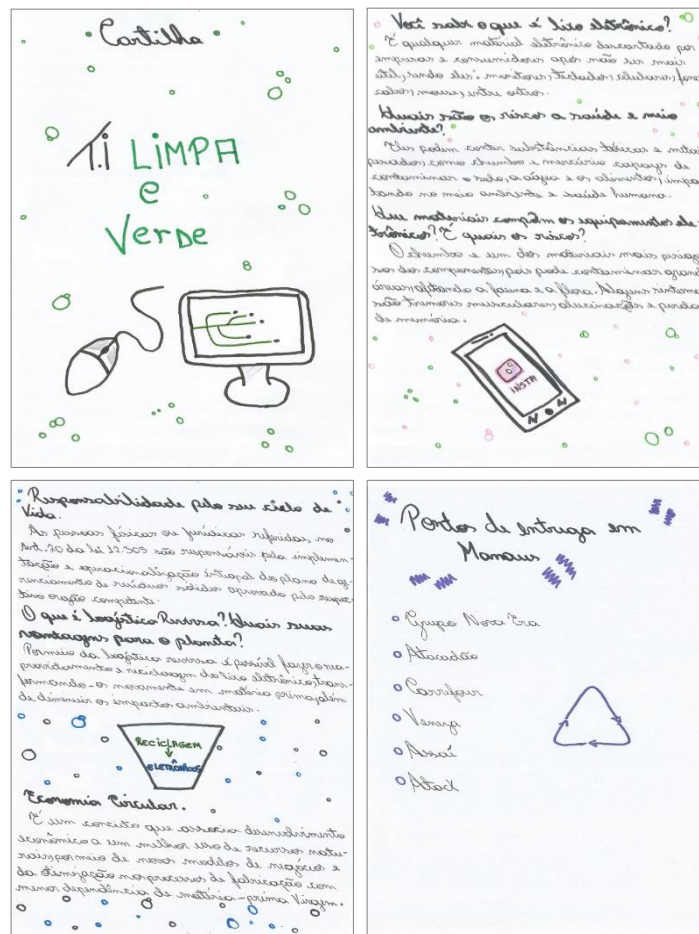 Cartilha
T.I LIMPA
e
VerDe
Você sabe o que é lixo eletrônico?
É qualquer material eletrônico descartado por
empresas e consumidores após não ser mais
útil, sendo eles: monitores, teclados, celulares, fone
cabos, mouses, entre outros.
Quais são os riscos a saúde e meio
ambiente?
Eles podem conter substâncias tóxicas e metais
pesados, como chumbo e mercúrio capazes de
contaminar o solo, a água e os alimentos, impac
tando no meio ambiente e saúde humana.
Que materiais compõem os equipamentos ele-
trônicos? E quais os riscos?
O chumbo e um dos materiais mais perigo
sos dos componentes, pois pode contaminar
afetando a fauna e a flora. Alguns sintomas
são tremores musculares, alucinações e perda
de memória.
INSTA
Responsabilidade pelo seu ciclo de
Vida.
As pessoas físicas ou jurídicas referidas no
Art. 20 da lei 12.305 são responsáveis pela implemen-
tação e operacionalização integral do plano de ge-
renciamento de resíduos sólidos aprovado pelo respec-
tivo orgão competente.
O que é Logística Reversa? Quais suas
vantagens para o planeta?
Por meio da logística reversa é possível fazer o rea-
proveitamento e reciclagem do lixo eletrônico, trans-
formando-os novamente em matéria prima, além
de diminuir os impactos ambientais.
RECICLAGEM
ELETRÔNICOS
Economia Circular.
É um conceito que associa desenvolvimento
econômico a um melhor uso de recursos natu-
rais, por meio de novos modelos de negócios e
da otimização nos processos de fabricação com
menor dependência de matéria-prima Virgem.
Pontos de entrega em
Manaus
Grupo Nova Era
Atacadão
Carrefour
Veneza
Assaí
Atack